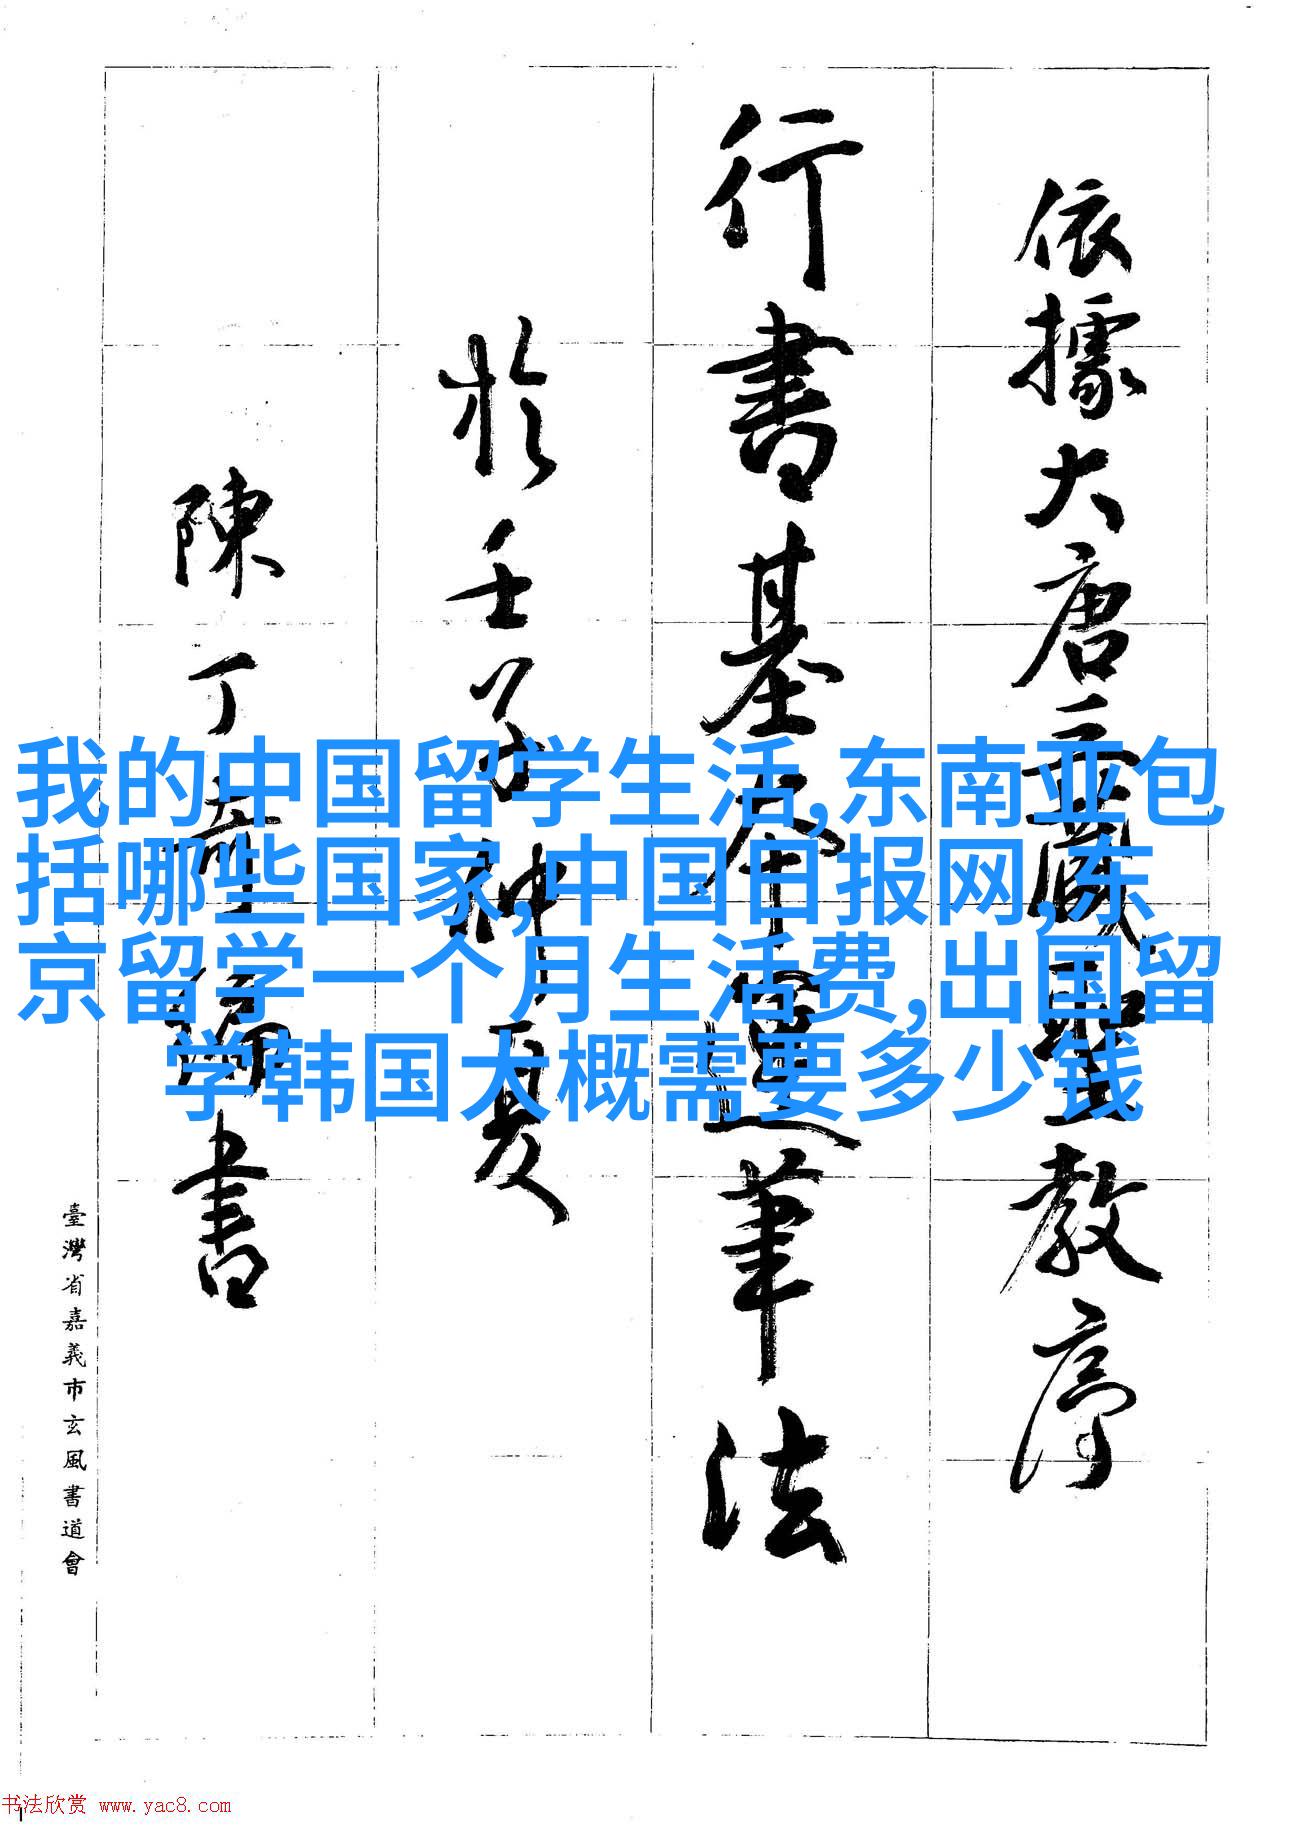 依據大唐三藏聖教序
行書基本運筆法
於壬子仲夏
陳丁奇編書
臺灣省嘉義市玄風書道會
我的中国留学生活,东南亚包
括哪些国家,中国日报网,东
京留学一个月生活费,出国留
学韩国大概需要多少钱
书法欣赏 www.yac8.com